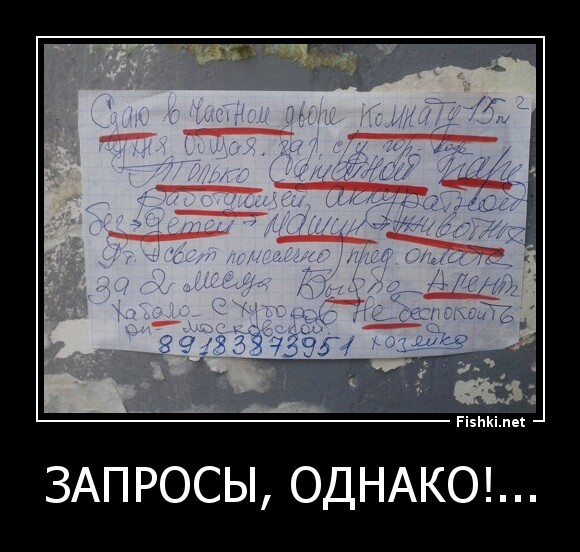 Сдаю в частном дворе комнату 15 м²
кухня общая. газ с/у гор. вода
Только Семейной Паре
Работующей, аккуратной
без детей машин животных
Эл. свет помесячно, пред. оплата
за 2 месяца Агент
Хабало с хуторов Не беспокоить
рн московской
89183873951 хозяйка
Fishki.net
ЗАПРОСЫ, ОДНАКО!...